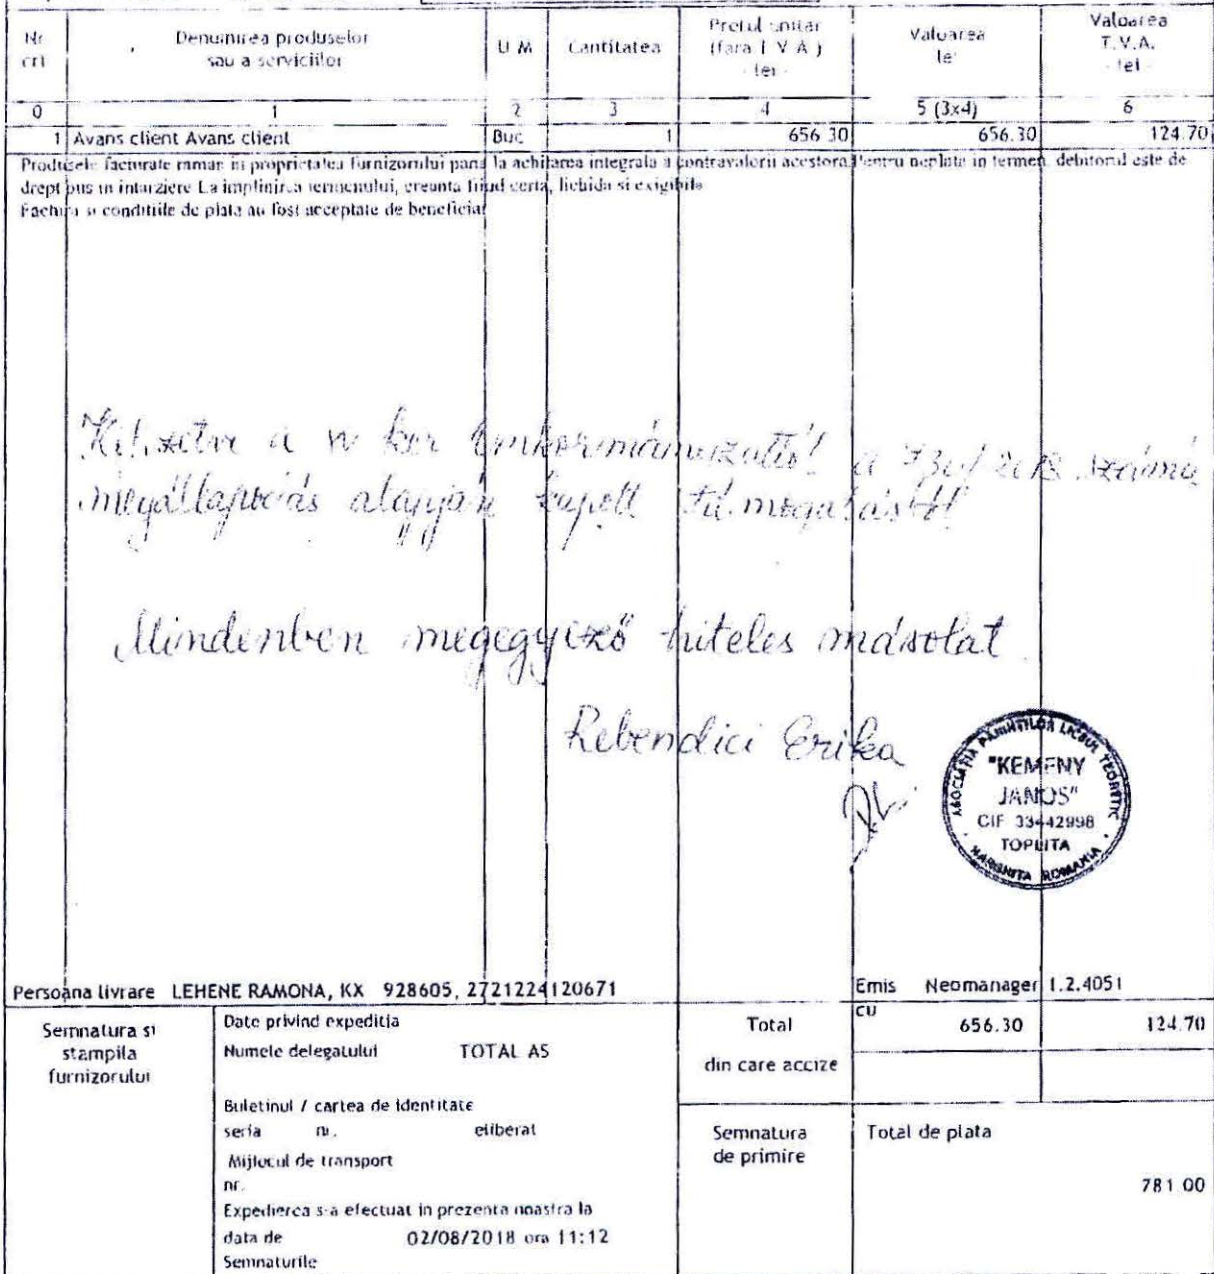 Nr. crt
Denumirea produselor sau a serviciilor
U M
Cantitatea
Pretul unitar (fara T V A ) - lei -
Valoarea lei
Valoarea T.V.A. - lei -
0 1 2 3 4 5 (3x4) 6
1 Avans client Avans client Buc 1 656 30 656.30 124.70
Produsele facturate raman in proprietatea furnizorului pana la achitarea integrala a contravalorii acestora Pentru neplate in termen debitorul este de
drept pus in intarziere La implinirea termenului, creanta fiind certa, lichida si exigibila
Factura si conditiile de plata au fost acceptate de beneficiar
Kifizetve a ker önkormányzattól a számú
megállapodás alapján kapott támogatásból
Mindenben megegyező hiteles másolat
Rebendici Erika
ASOCIATIA PARINTILOR LICEUL TEORETIC
"KEMENY
JANOS"
CIF 33442998
TOPLITA
HARGHITA ROMANIA
Persoana livrare LEHENE RAMONA, KX 928605, 2721224120671
Emis Neomanager 1.2.4051
CU
Semnatura si
stampila
furnizorului
Date privind expeditia
Numele delegatului TOTAL AS
Buletinul / cartea de identitate
seria nr. eliberat
Mijlocul de transport
nr.
Expedierea s-a efectuat in prezenta noastra la
data de 02/08/2018 ora 11:12
Semnaturile
Total 656.30 124.70
din care accize
Semnatura
de primire
Total de plata
781 00